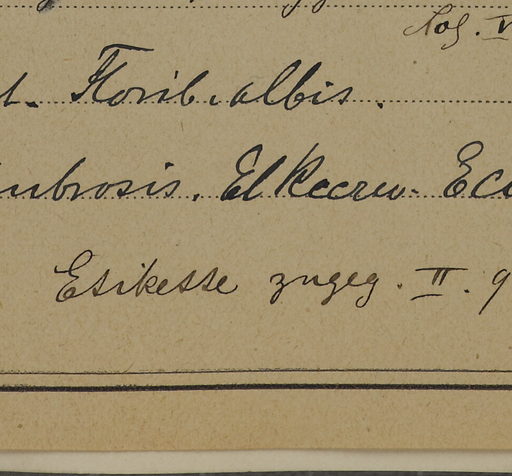 Florib. albis.
umbrosis. El Recreo. Ecu
Etikette zugeg. II. 9